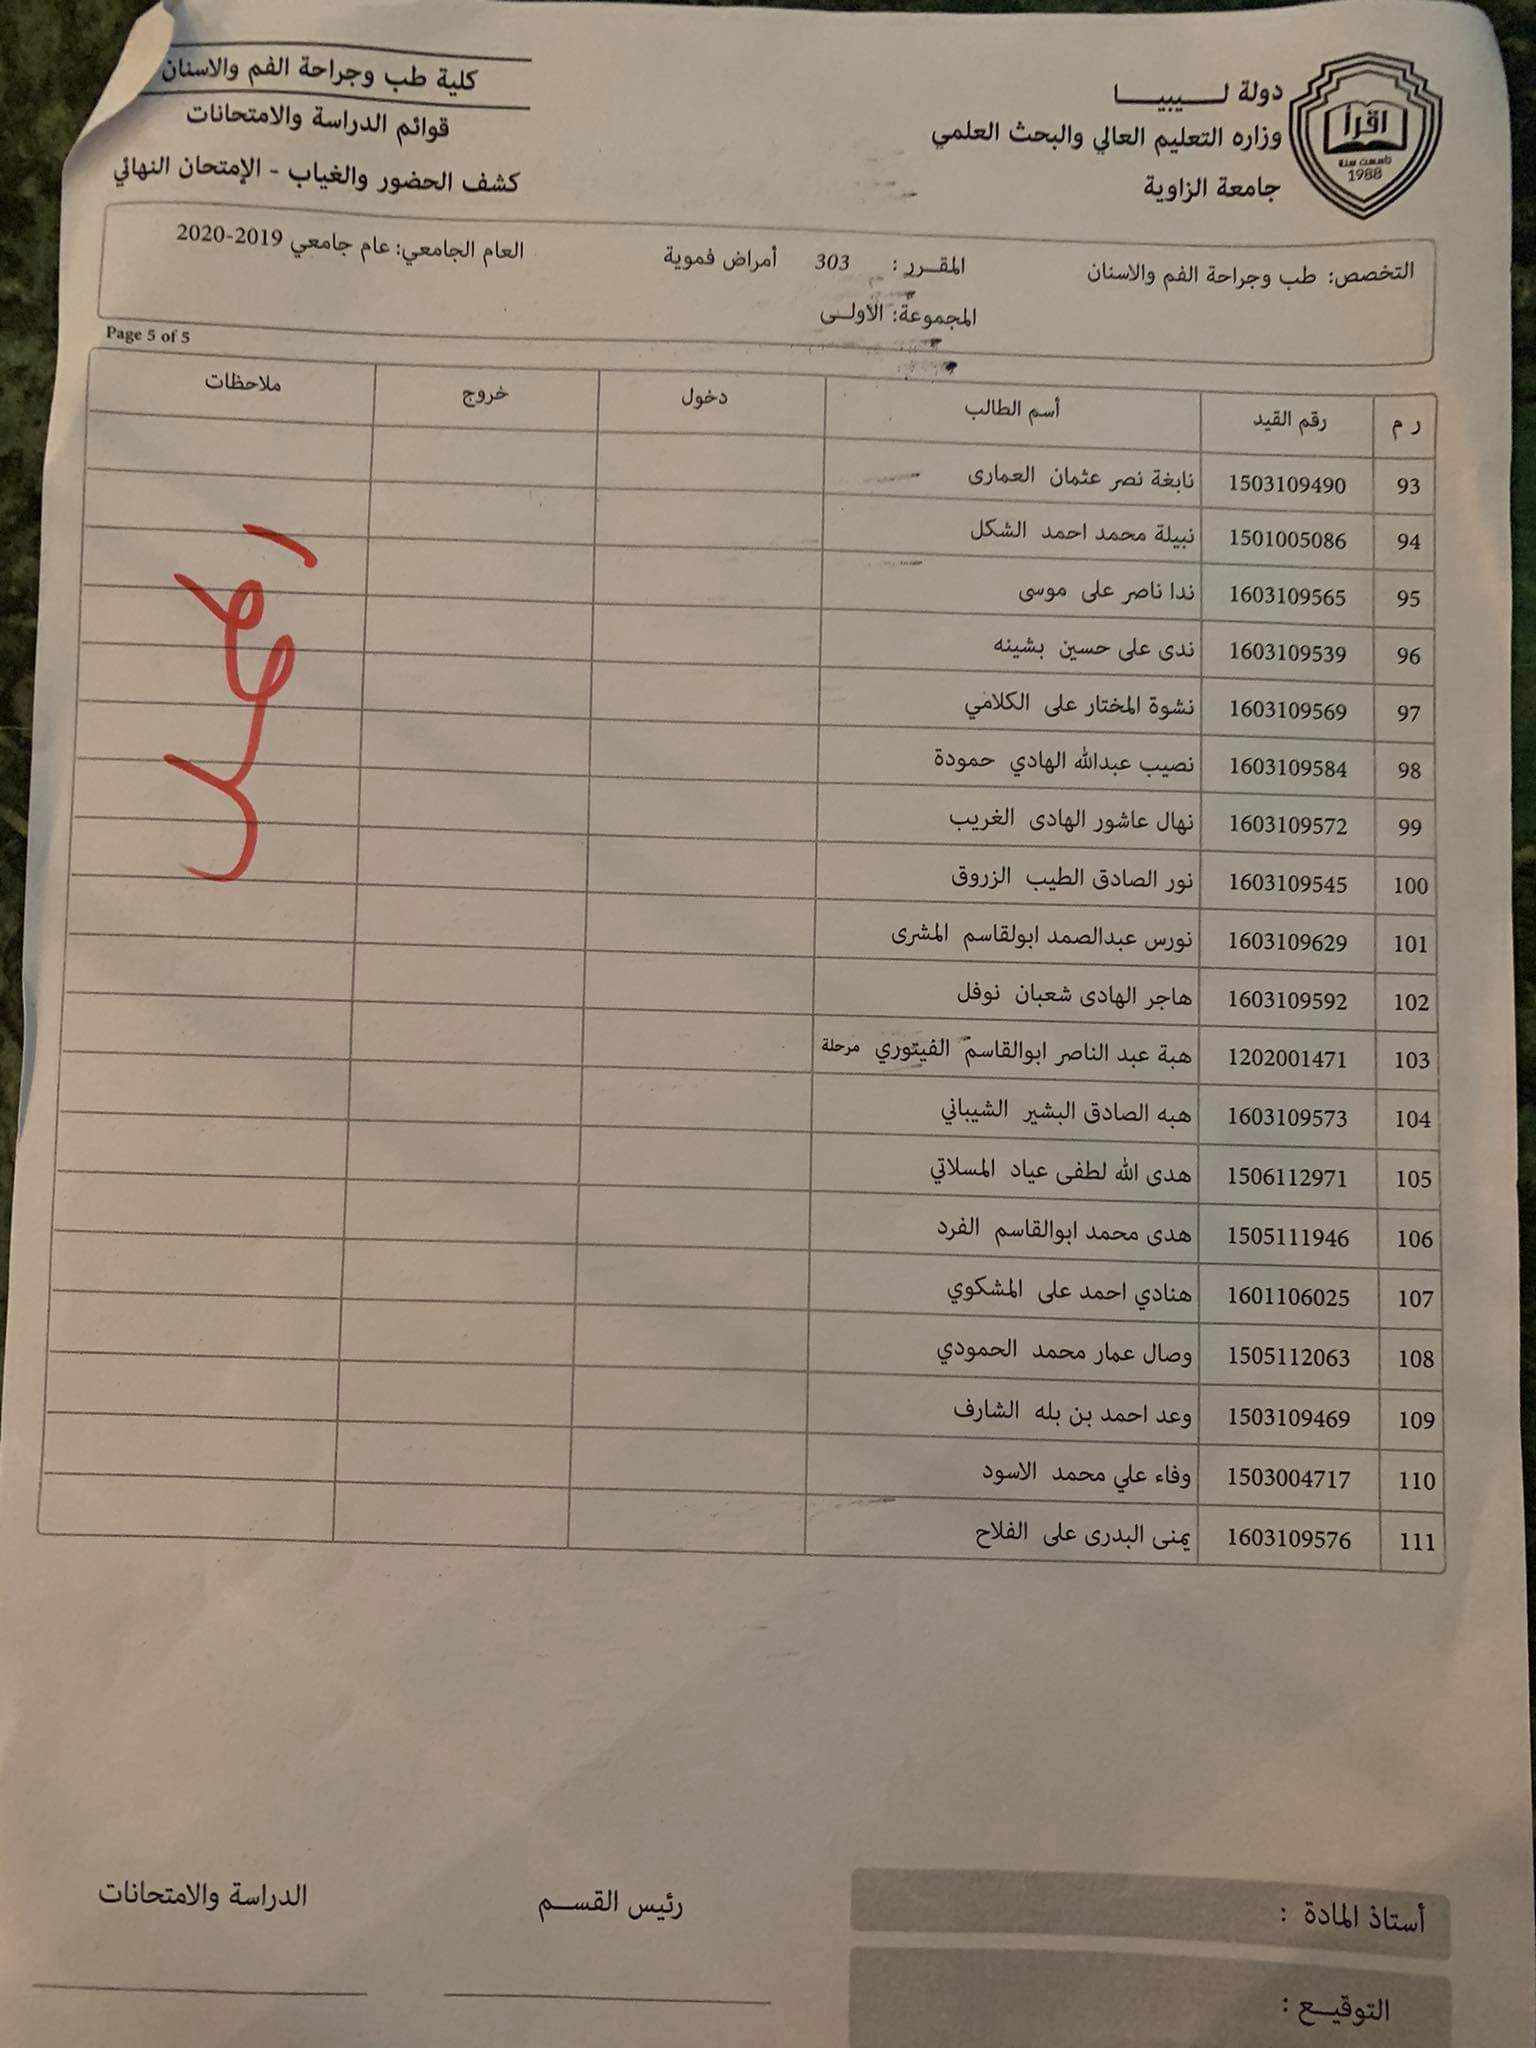 اقرأ
تأسست سنة
1988
دولة لـــــيبيـــــا
وزاره التعليم العالي والبحث العلمي
جامعة الزاوية
كلية طب وجراحة الفم والاسنان
قوائم الدراسة والامتحانات
كشف الحضور والغياب - الإمتحان النهائي
التخصص: طب وجراحة الفم والاسنان المقـــرر : 303 أمراض فموية العام الجامعي: عام جامعي 2019-2020
المجموعة: الأولــى
Page 5 of 5
ر م رقم القيد أسم الطالب دخول خروج ملاحظات
93 1503109490 نابغة نصر عثمان العمارى
94 1501005086 نبيلة محمد احمد الشكل
95 1603109565 ندا ناصر على موسى
96 1603109539 ندى على حسين بشينه
97 1603109569 نشوة المختار على الكلامي
98 1603109584 نصيب عبدالله الهادي حمودة
99 1603109572 نهال عاشور الهادى الغريب
100 1603109545 نور الصادق الطيب الزروق
101 1603109629 نورس عبدالصمد ابولقاسم المشرى
102 1603109592 هاجر الهادى شعبان نوفل
103 1202001471 هبة عبد الناصر ابوالقاسم الفيتوري مرحلة
104 1603109573 هبه الصادق البشير الشيباني
105 1506112971 هدى الله لطفى عياد المسلاتي
106 1505111946 هدى محمد ابوالقاسم الفرد
107 1601106025 هنادي احمد على المشكوي
108 1505112063 وصال عمار محمد الحمودي
109 1503109469 وعد احمد بن بله الشارف
110 1503004717 وفاء علي محمد الاسود
111 1603109576 يمنى البدرى على الفلاح
أستاذ المادة : رئيس القســـم الدراسة والامتحانات
التوقيـــع :